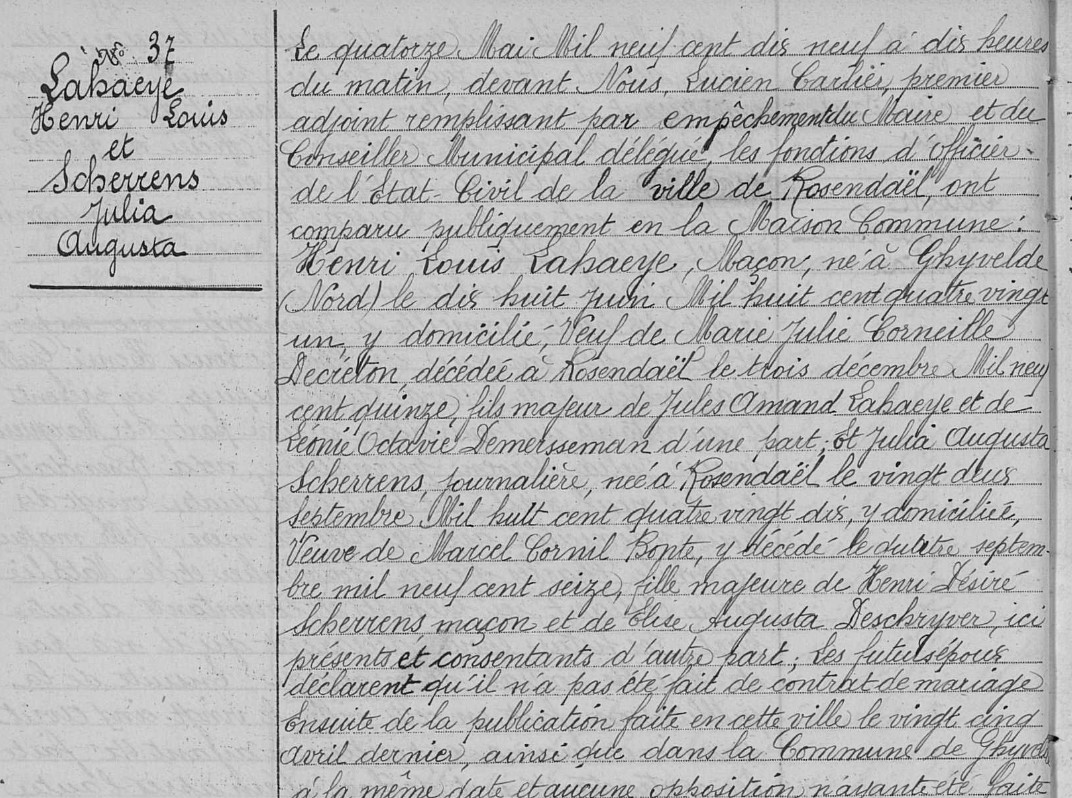 No 37
Lahaeye
Henri Louis
et
Scherrens
Julia
Augusta
Le quatorze Mai Mil neuf cent dix neuf à dix heures
du matin, devant Nous, Lucien Carlier, premier
adjoint remplissant par empêchement du Maire et du
Conseiller Municipal délégué, les fonctions d'officier
de l'Etat-Civil de la ville de Rosendaël, ont
comparu publiquement en la Maison Commune :
Henri Louis Lahaeye, Maçon, né à Ghyvelde
(Nord) le dix huit Juin Mil huit cent quatre vingt
un, y domicilié, Veuf de Marie Julie Corneille
Decreton, décédée à Rosendaël le trois décembre Mil neuf
cent quinze, fils majeur de Jules Amand Lahaeye et de
Léonie Octavie Demersseman d'une part ; Et Julia Augusta
Scherrens, journalière, née à Rosendaël le vingt deux
septembre Mil huit cent quatre vingt dix, y domiciliée,
Veuve de Marcel Cornil Bonte, y décédé le quatre septem-
bre mil neuf cent seize, fille majeure de Henri Désiré
Scherrens, maçon et de Elise Augusta Deschryver, ici
présents et consentants d'autre part, Les futurs époux
déclarent qu'il n'a pas été fait de contrat de mariage
Ensuite de la publication faite en cette ville le vingt cinq
Avril dernier, ainsi que dans la Commune de Ghyvelde
à la même date et aucune opposition n'ayant été faite